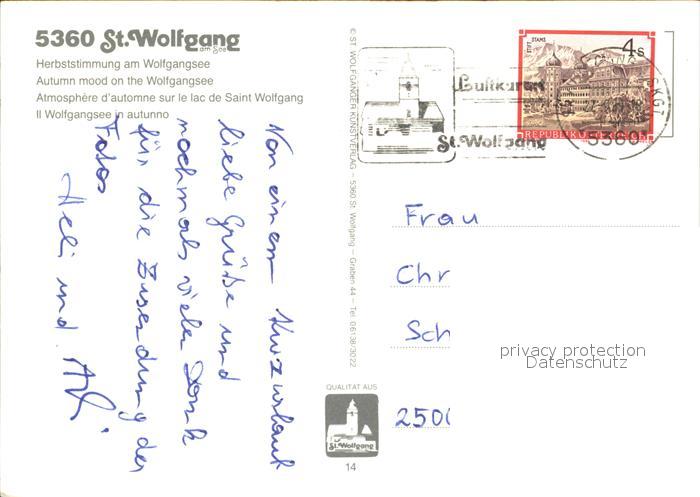 5360 St. Wolfgang
am See
Herbststimmung am Wolfgangsee
Autumn mood on the Wolfgangsee
Atmosphère d'automne sur le lac de Saint Wolfgang
Il Wolfgangsee in autunno
Von einem Kurzurlaub
liebe Grüße und
nochmals vielen Dank
für die Zusendung der
Fotos
Heli und
© ST. WOLFGANGER KUNSTVERLAG – 5360 St. Wolfgang – Graben 44 – Tel. 06138/3022
Luftkurort
St. Wolfgang
STIFT STAMS
4s
REPUBLIK
5360
Frau
Chr
Sch
privacy protection
Datenschutz
2500
QUALITÄT AUS
St. Wolfgang
14